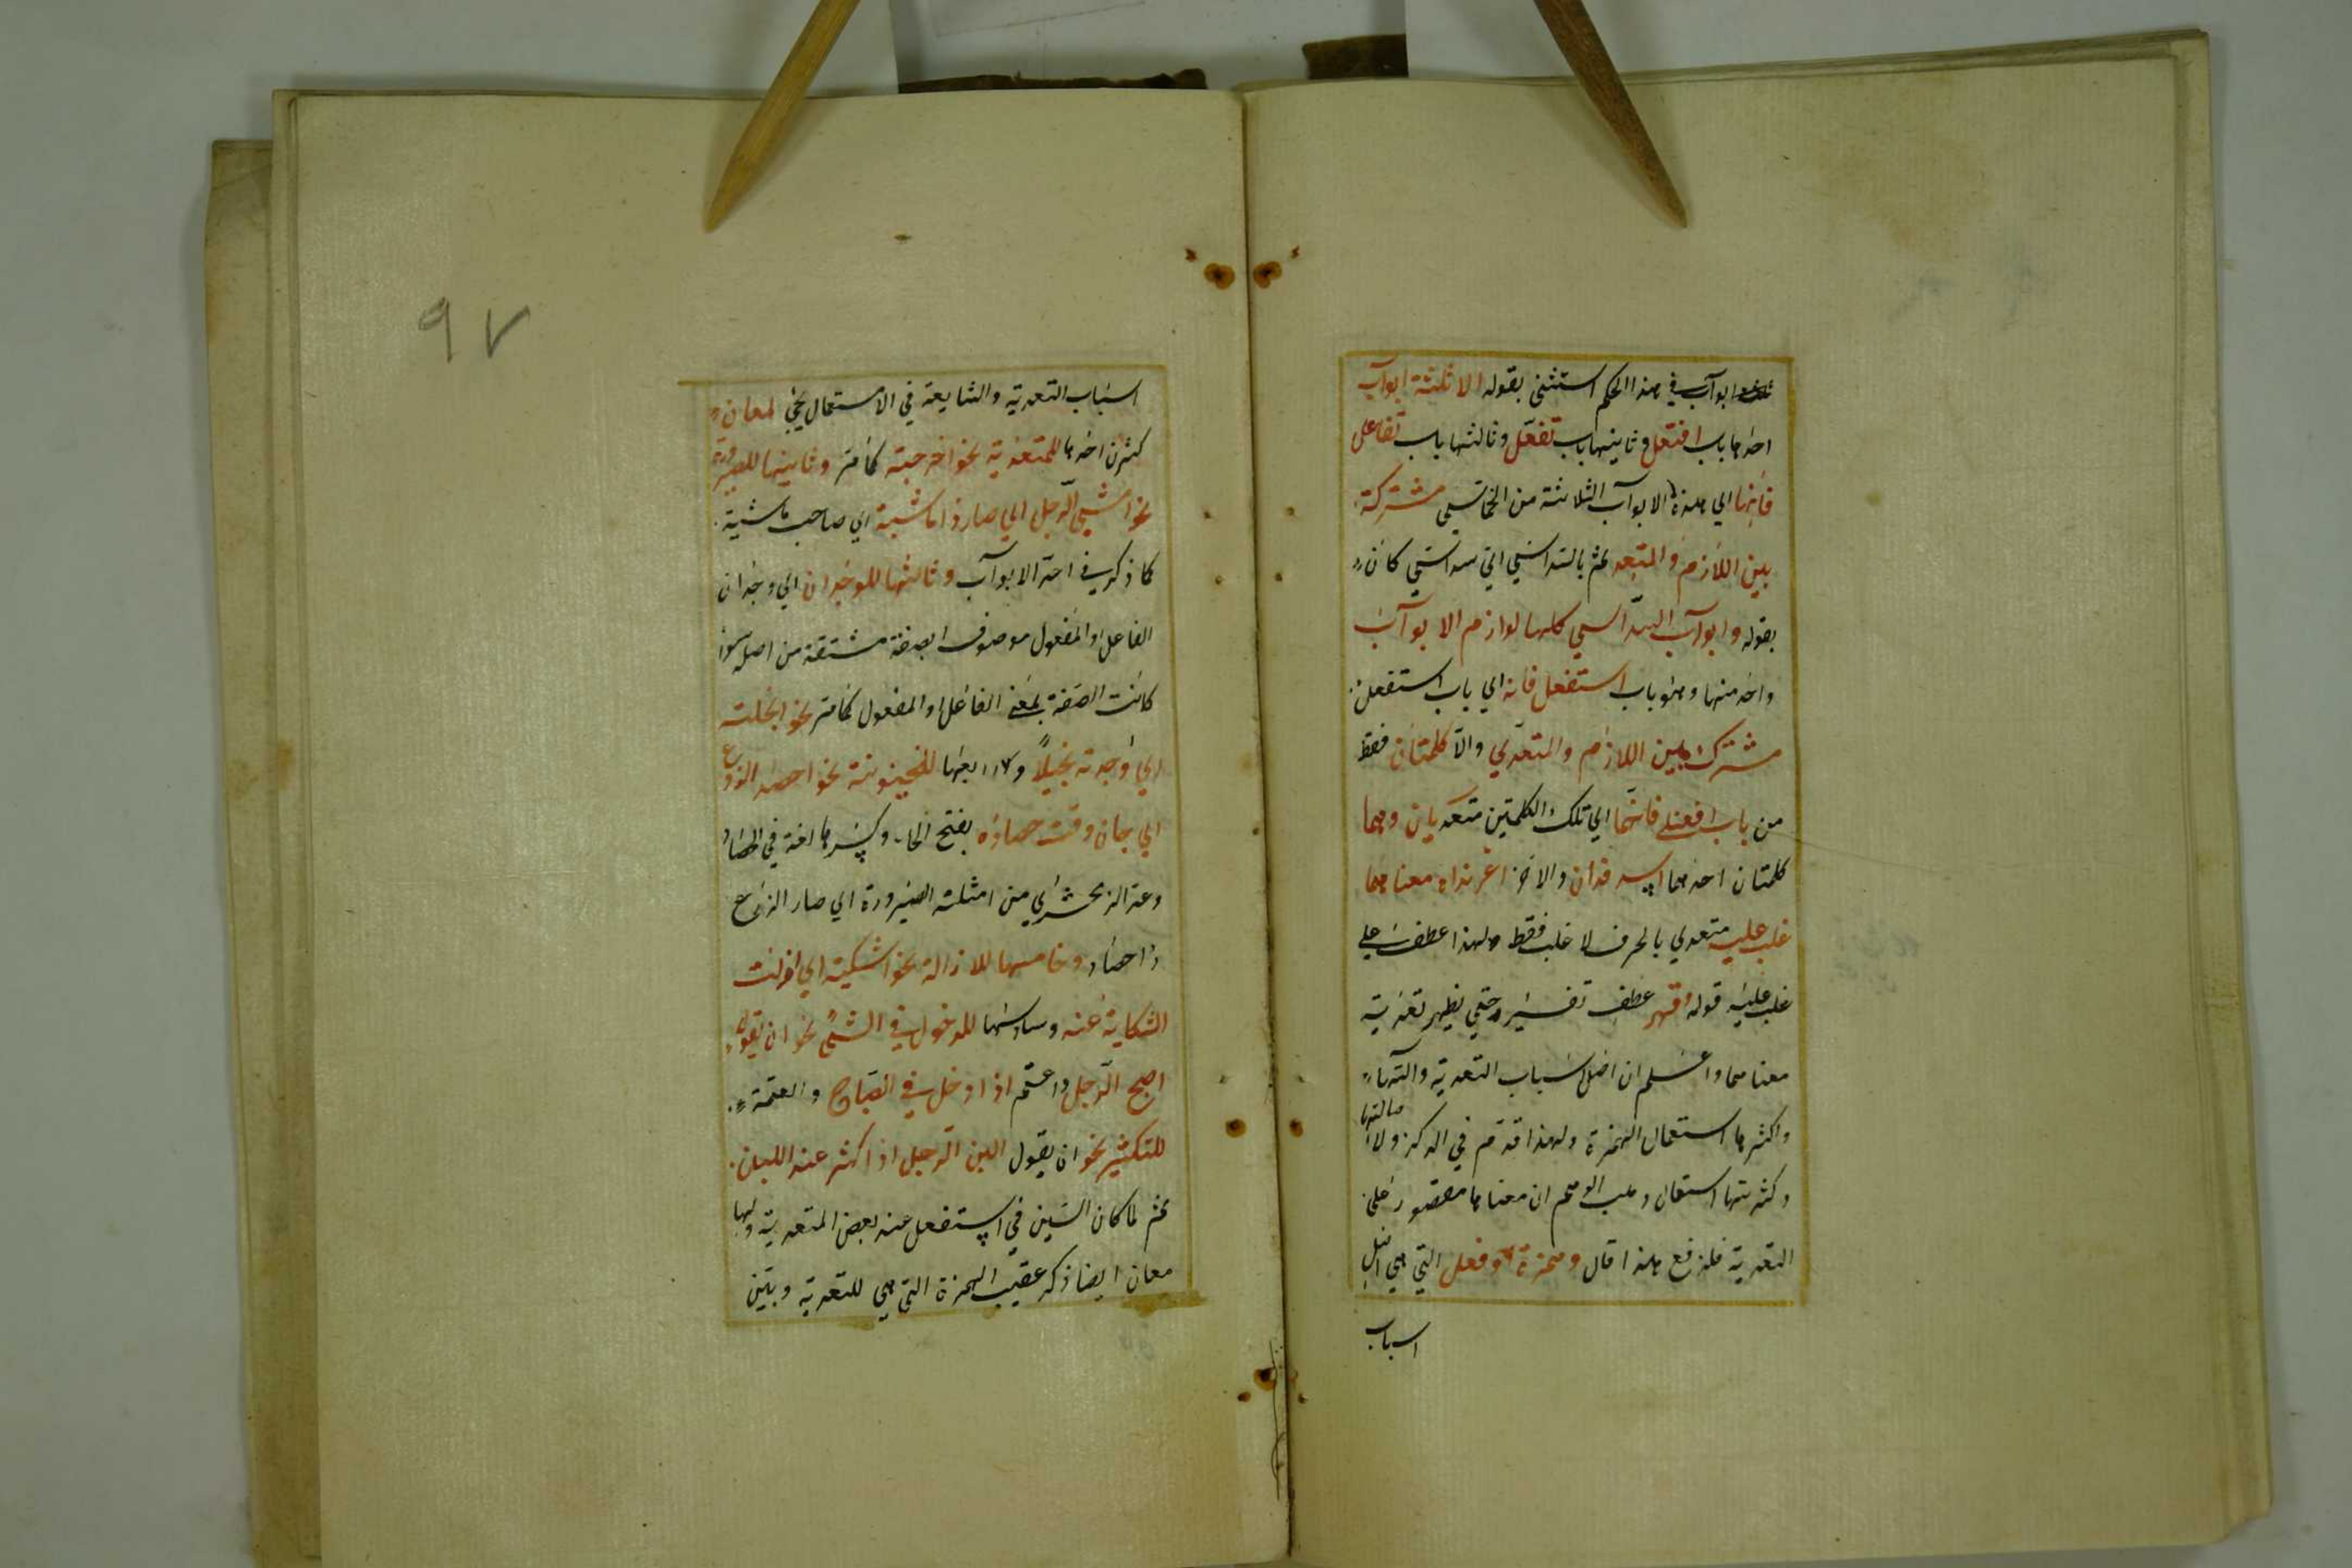 ثلثة ابوآب في هذا الحكم استثنى بقوله الا ثلثة ابوآب
احدها باب افتعل وثانيها باب تفعّل وثالثها باب تفاعل
فانها اي هذه الابوآب الثلاثة من الخماسي مشتركة
بين اللازم والمتعد ثم بالسداسي
بقوله وابوآب السداسي كلها لوازم الا بوآب
واحد منها وهو باب استفعل فانه اي باب استفعل
مشترك بين اللازم والمتعدي والا كلمتان فقط
من باب افعنلى فانهما اي تلك الكلمتين متعديان وهما
كلمتان احدهما اسرندان والاخر اغرنداه معناهما
غلب عليه متعدي بالحرف لا غلب فقط ولهذا عطف على
غلب عليه قوله وقهر عطف تفسير حتى يظهر تعدية
معناهما واعلم ان اصل اسباب التعدية والتها
واكثرها استعمال الهمزة ولهذا قدم في الذكر ولاصالتها
وكثرتها استعمال الوهم ان معناها مقصور على
التعدية فلدفع هذا قال وهمزة افعل التي هي اصل
اسباب
٩٧
اسباب التعدية والشايعة في الاستعمال يجئ لمعان
كثرن احدها للتعدية نحو اخرجته كمامر وثانيها للصيرورة
نحو امشى الرجل اي صار ذا ماشية اي صاحب ماشية
كما ذكر في اخر الابوآب وثالثها للوجدان اي وجدان
الفاعل او المفعول موصوف بصفة مشتقة من اصله سواء
كانت الصفة بمعنى الفاعل او المفعول كمامر نحو ابخلته
اي وجدته بخيلاً ورابعها للحينونة نحو احصد الزرع
اي حان وقت حصاده بفتح الحاء وكسرها لغة في الحصاد
وعد الزمحشري من امثلته الصيرورة اي صار الزرع
ذا حصاد وخامسها للازالة نحو اشكيته اي ازلت
الشكاية عنه وسادسها للدخول في الشئ نحو ان يقول
اصبح الرجل واعتم اذا دخل في الصباح والعتمة
للتكثير نحو ان يقول البن الرجل اذا كثر عنده اللبن
ثم لما كان السين في استفعل عند بعض المتعدية ولها
معان ايضا ذكر عقيب الهمزة التي هي للتعدية وبين